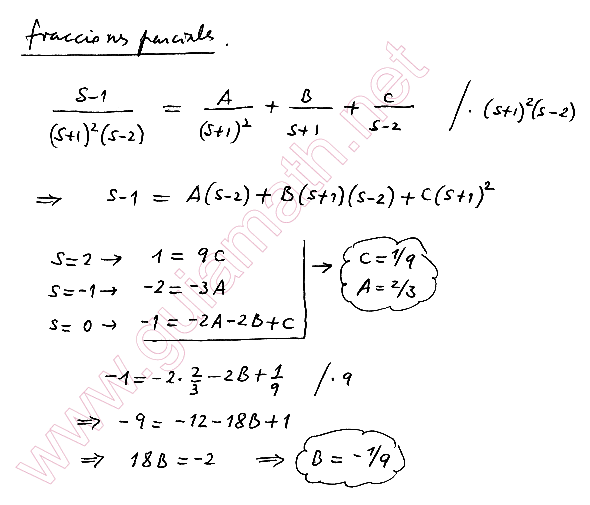 fracciones parciales.
(s-1)/((s+1)²(s-2)) = A/(s+1)² + B/(s+1) + C/(s-2) /·(s+1)²(s-2)
⇒ s-1 = A(s-2) + B(s+1)(s-2) + C(s+1)²
s=2 → 1 = 9C → C = 1/9
s=-1 → -2 = -3A A = 2/3
s= 0 → -1 = -2A-2B+C
-1 = -2·2/3 -2B + 1/9 /·9
⇒ -9 = -12-18B+1
⇒ 18B = -2 ⇒ B = -1/9
www.guiamath.net